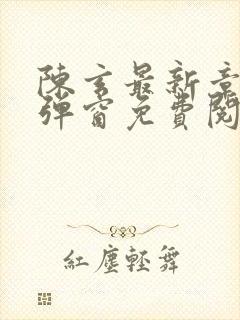 陳玄最新章
彈窗免費閱
紅塵輕舞